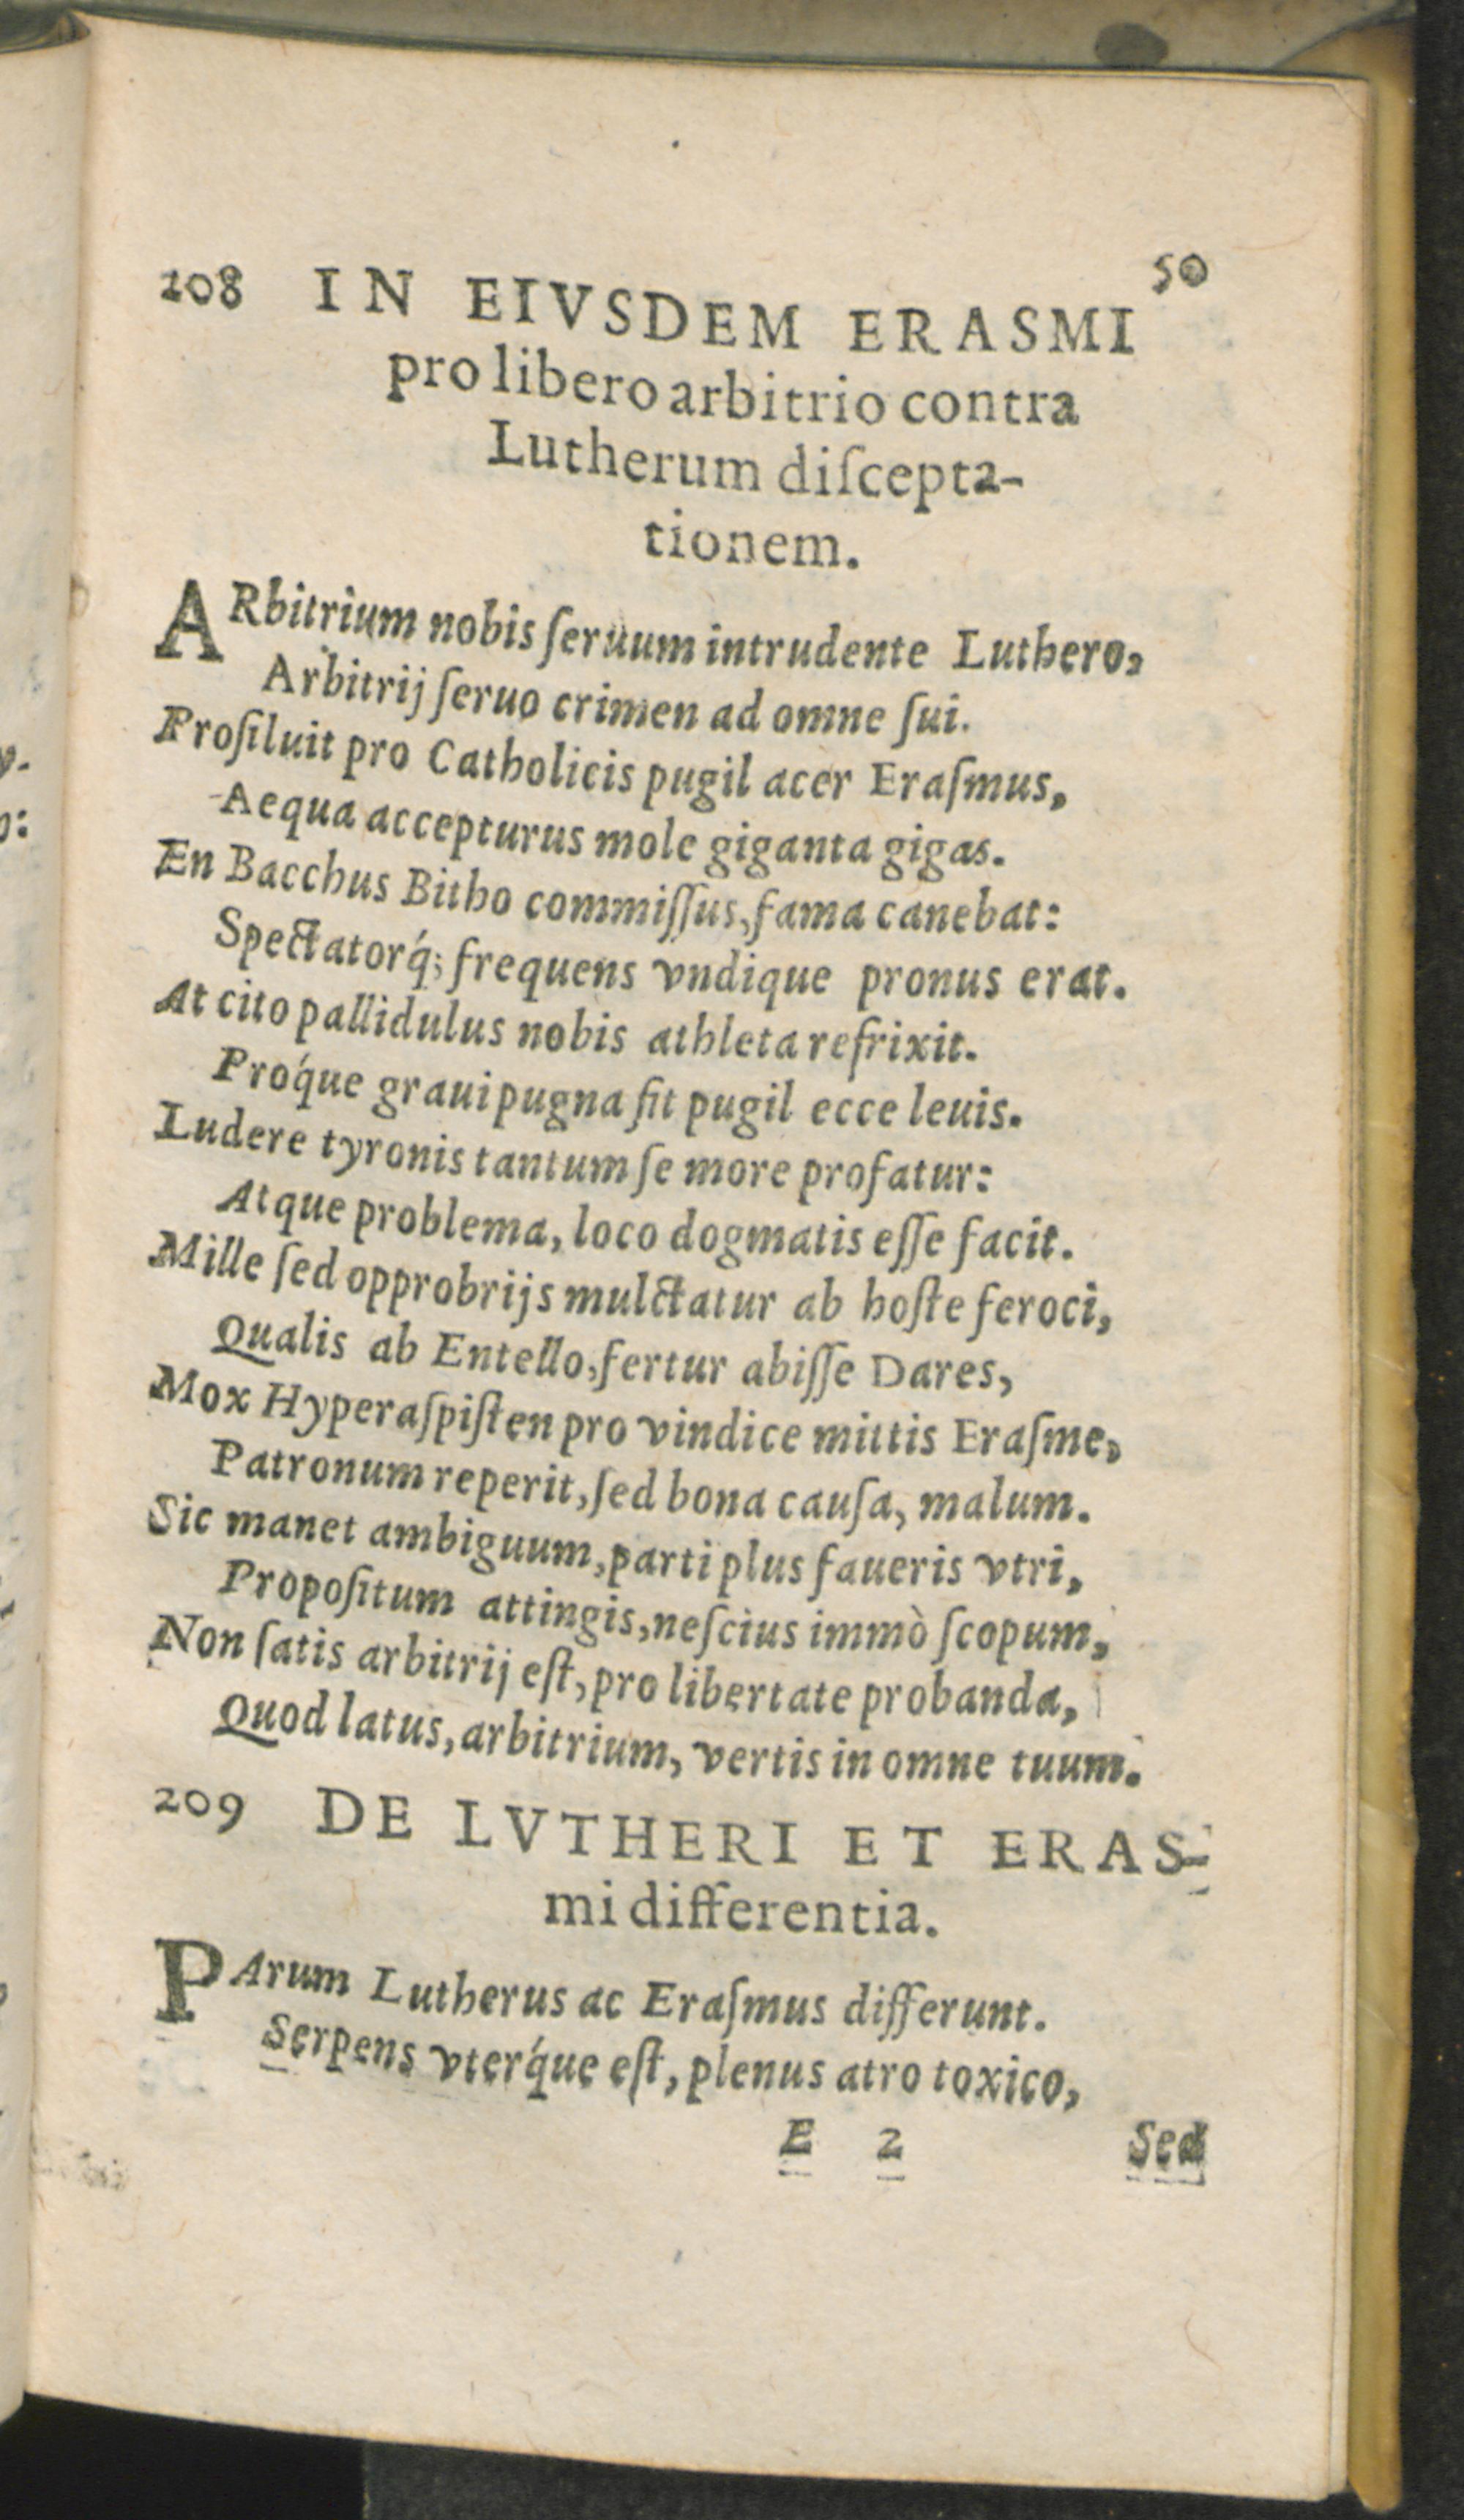 50
208 IN EIVSDEM ERASMI
pro libero arbitrio contra
Lutherum diſcepta-
tionem.
ARbitrium nobis ſeruum intrudente Luthero,
Arbitrij ſeruo crimen ad omne ſui.
Proſiluit pro Catholicis pugil acer Eraſmus,
Aequa accepturus mole giganta gigas.
En Bacchus Bitho commiſſus, fama canebat:
Spectatorq́; frequens vndique pronus erat.
At cito pallidulus nobis athleta refrixit.
Proq́ue graui pugna fit pugil ecce leuis.
Ludere tyronis tantum ſe more profatur:
Atque problema, loco dogmatis eſſe facit.
Mille ſed opprobrijs mulctatur ab hoſte feroci,
Qualis ab Entello, fertur abiſſe Dares,
Mox Hyperaſpiſten pro vindice mittis Eraſme,
Patronum reperit, ſed bona cauſa, malum.
Sic manet ambiguum, parti plus faueris vtri,
Propoſitum attingis, neſcius immò ſcopum,
Non ſatis arbitrij eſt, pro libertate probanda,
Quod latus, arbitrium, vertis in omne tuum.
209 DE LVTHERI ET ERAS-
mi differentia.
PArum Lutherus ac Eraſmus differunt.
Serpens vterq́ue eſt, plenus atro toxico,
E 2 Sed